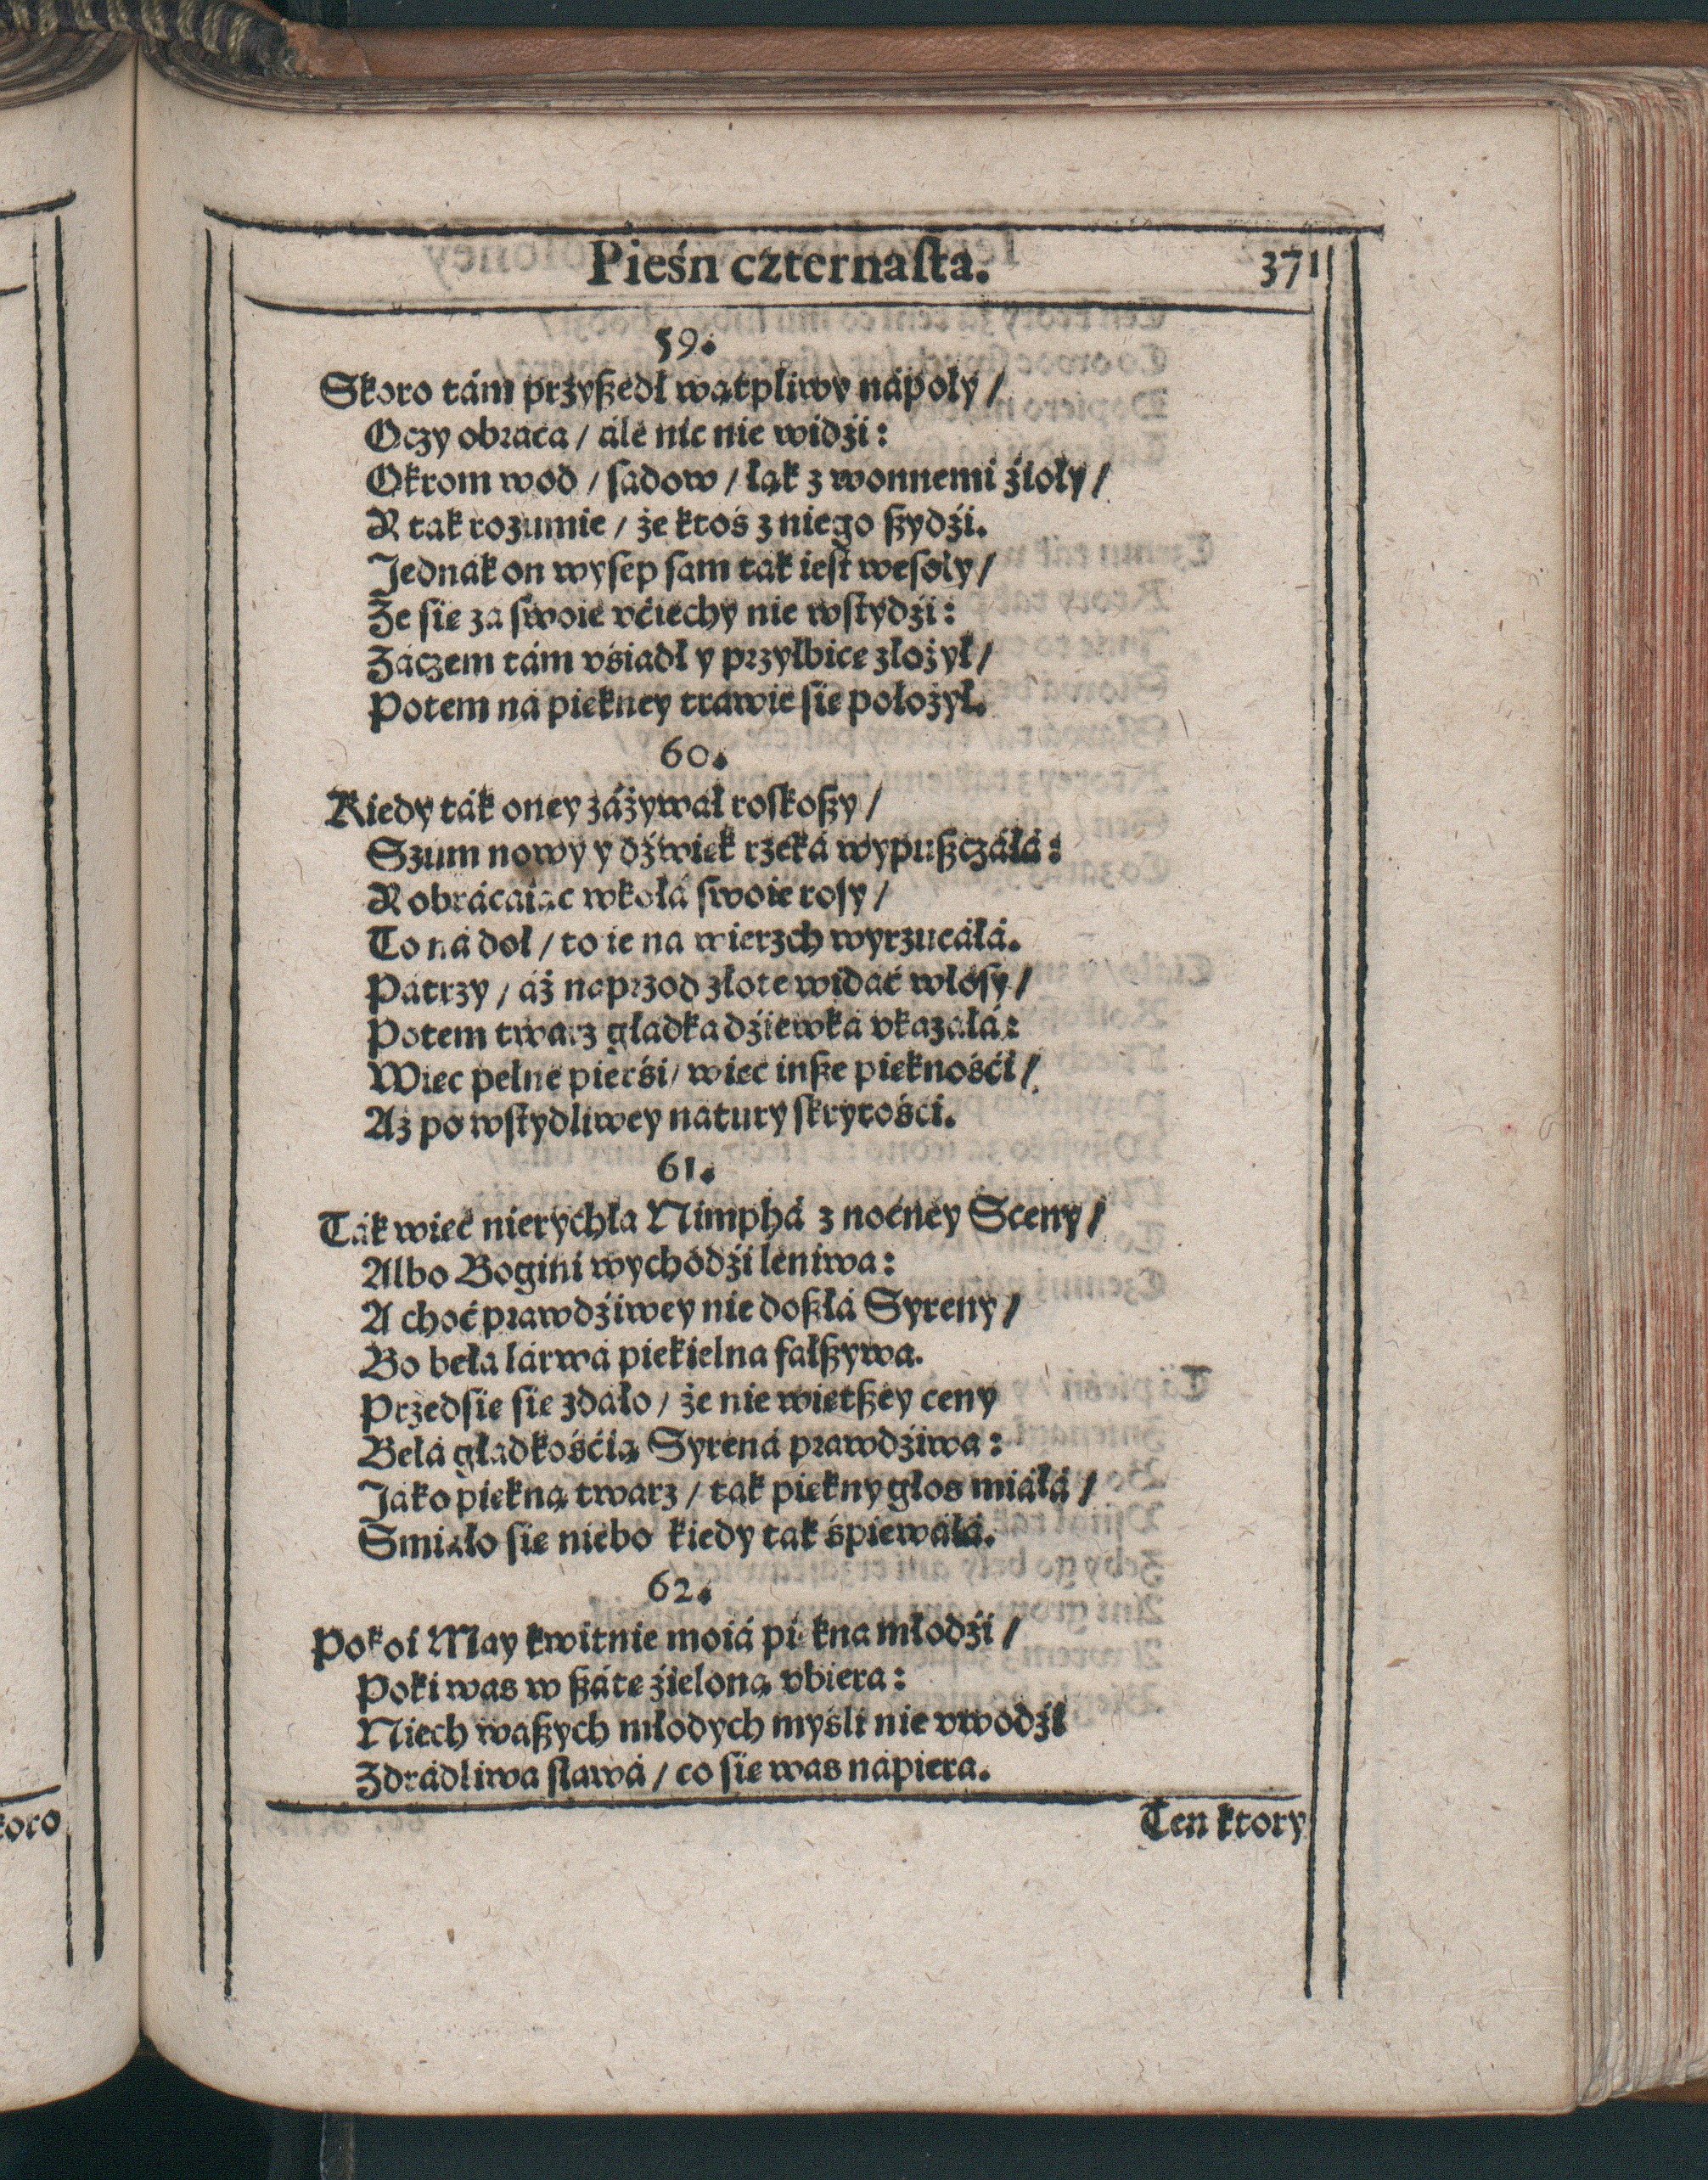 Pieśn czternasta.
371
59.
Skoro tám przyszedł wątpliwy nápoły /
Oczy obraca / ále nic nie widźi:
Okrom wod / sadow / łąk z wonnemi źioły /
A tak rozumie / że ktoś z niego szydźi.
Jednák on wysep sam tak iest wesoły /
Że sie za swoie vćiechy nie wstydźi:
Záczem tám vśiadł y przyłbice złożył /
Potem ná piekney trawie sie położył.
60.
Kiedy ták oney záżywał roskoszy /
Szum nowy y dźwiek rzeká wypuszczáłá:
A obrácáiąc wkołá swoie rosy /
To ná doł / to ie na wierzch wyrzucáłá.
Pátrzy / áż naprzod złote widáć włosy /
Potem twarz gładka dźiewká vkazáłá:
Wiec pełne pierśi / wiec insze pieknośći /
Aż po wstydliwey natury skrytości.
61.
Ták wiec nierychła Nimphá z nocney Sceny /
Albo Bogini wychodźi leniwa:
A choć prawdźiwey nie doszłá Syreny /
Bo beła lárwá piekielna fałszywa.
Przedsie sie zdało / że nie wietszey ceny
Belá głádkośćią Syrená prawdźiwa:
Jako piekną twarz / tak piekny głos miáłá /
Smiało sie niebo kiedy tak śpiewáłá.
62.
Pokoi May kwitnie moiá piekna młodźi /
Poki was w száte źieloną vbiera:
Niech wászych młodych myśli nie vwodźi
Zdrádliwa sławá / co sie was nápiera.
Ten ktory
koro